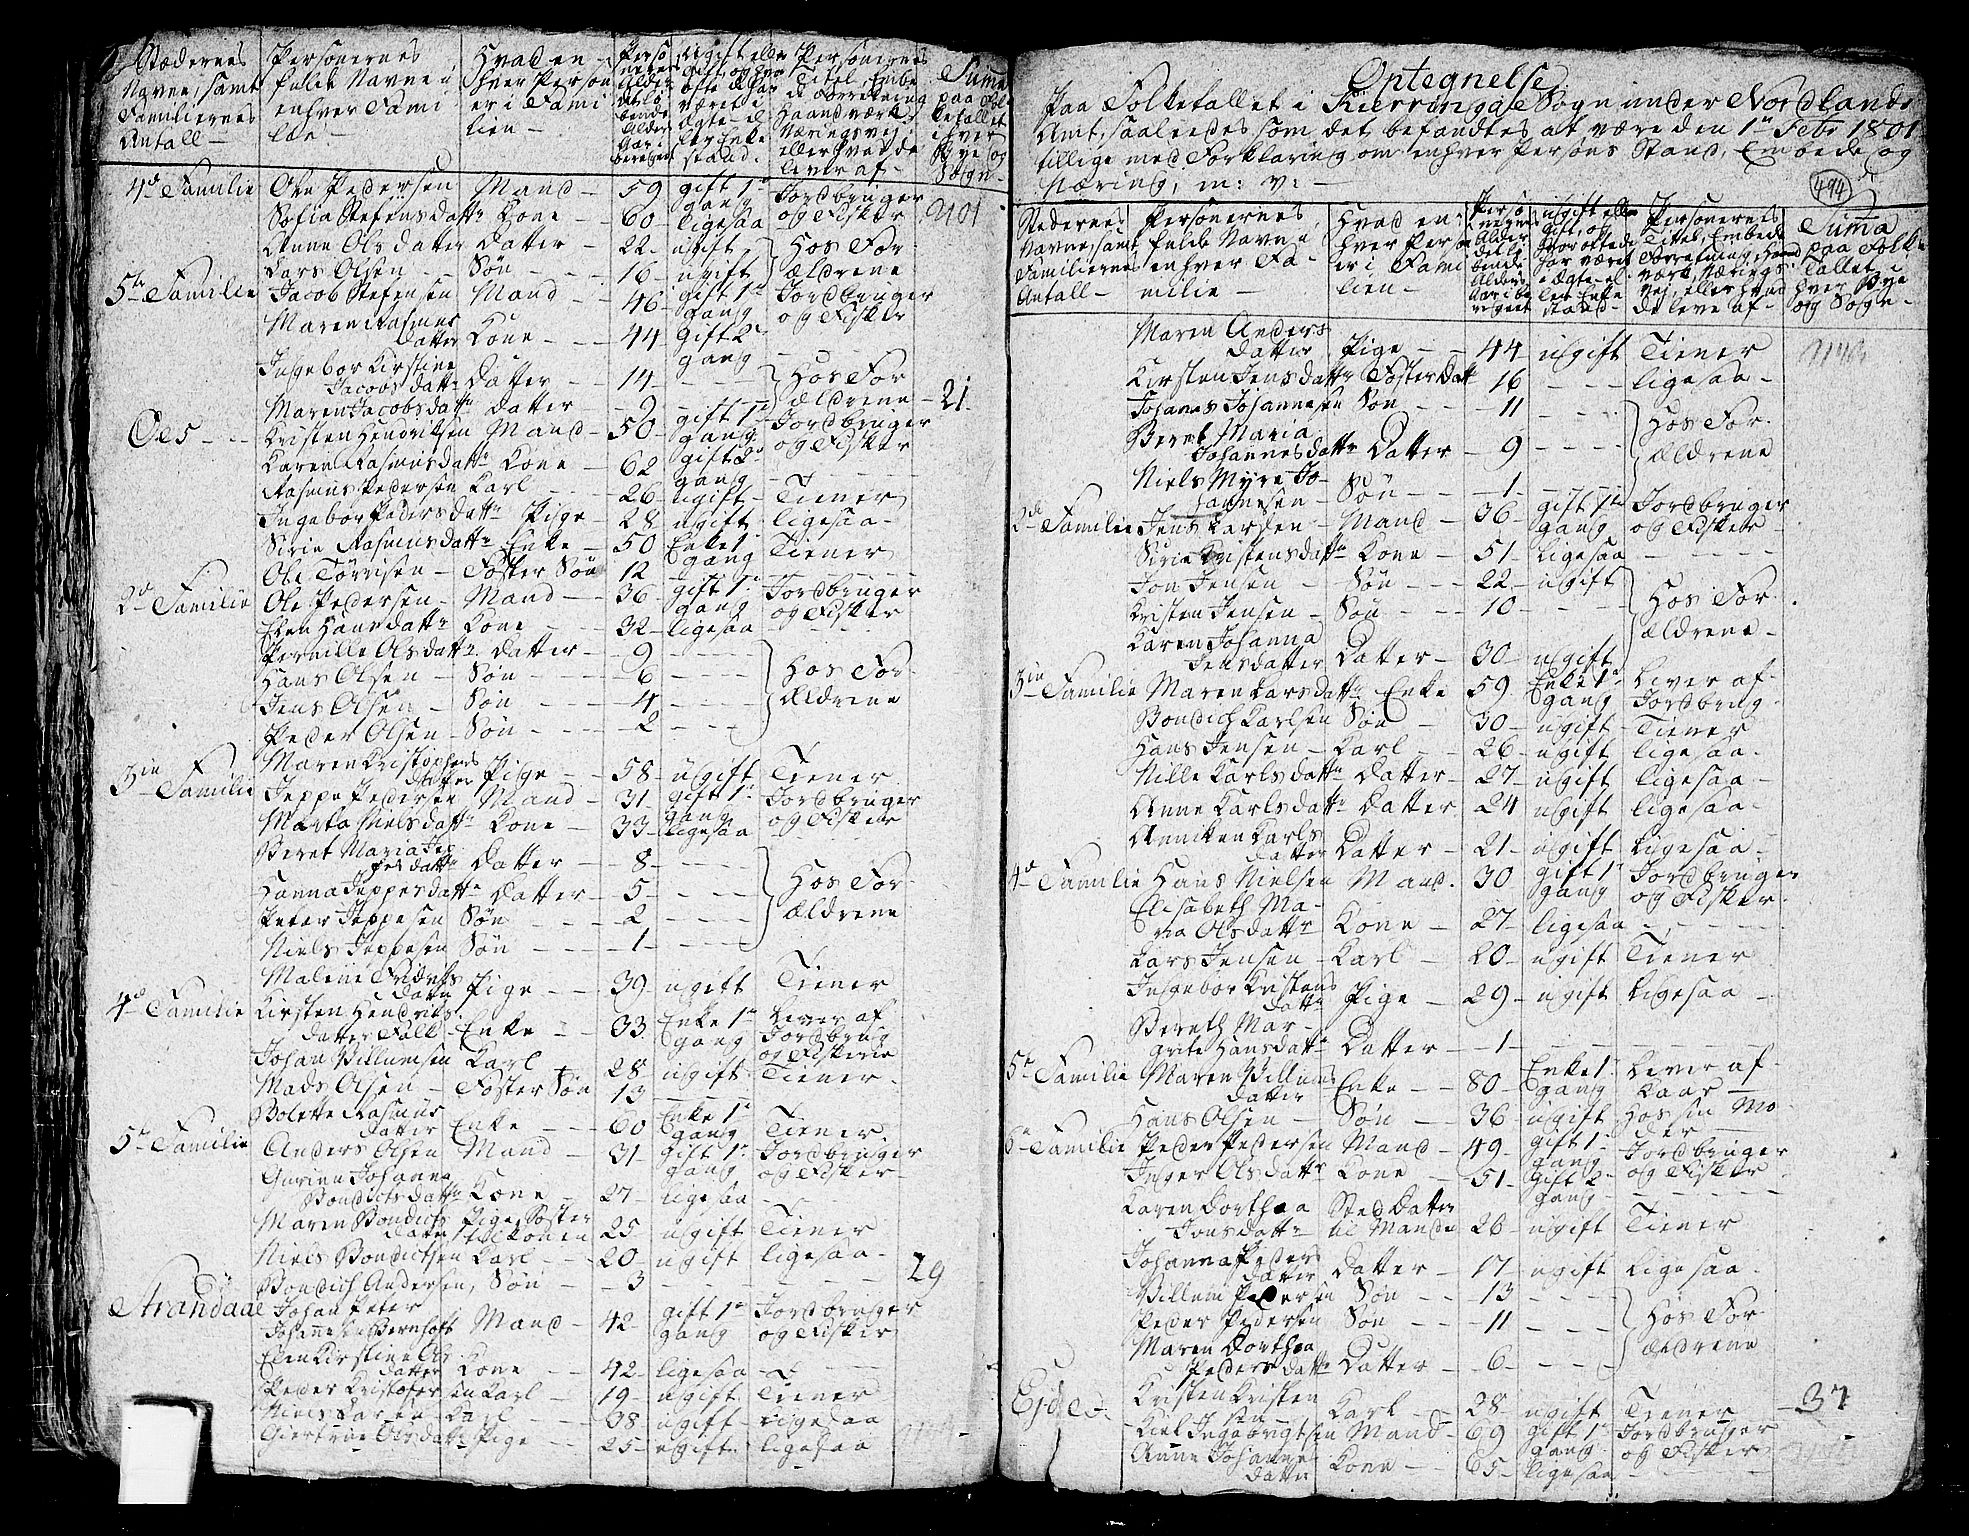 Stædernes Navne, samt Familiernes Antall — Personernes fulde Navne i enhver Familie — Hvad enhver Person er i Familien — Ugift eller gift, og hvor ofte Ægte eller Enke stand. Personernes Titel, Embede Forretning Haandværk Næringsvej eller hvad de lever af — Suma paa Folketallet i hver Bye og Sogn
4de Familie Ole Pedersen Mand — 59 gift 1te gang Jordbruger og Fisker 401
Sofia Stefensdattr Kone — 60 ligesaa
Anne Olsdatter Datter — 22 ugift Hos For
Lars Olsen — Søn — 16 ugift ældrene
5te Familie Jacob Stefensen Mand — 46 gift 1te gang Jordbruger og Fisker
Maren Rasmus
datter Kone — 44 gift 2 gang
Ingebor Kirstine
Jacobsdattr Datter — 14 — Hos For
Maren Jacobsdattr Datter — 9 ældrene — 21
Oes — Kristen Hendriksen Mand — 50 gift 1te gang Jordbruger og Fisker
Karen Rasmusdattr Kone — 62 gift 2 gang
Rasmus Pedersen Karl — 26 ugift — Tiener
Ingebor Pedersdattr Pige — 28 ugift ligesaa —
Sirie Rasmusdattr Enke — 50 Enke 1 gang Tiener
Ole Tørrisen — Foster Søn 12
2de Familie Ole Pedersen — Mand — 36 gift 1 gang Jordbruger og Fisker
Elen Hansdattr Kone — 32 ligesaa
Pernille Olsdattr Datter — 9
Hans Olsen — Søn — 6 Hos For
Jens Olsen — Søn — 4 ældrene
Peder Olsen — Søn — 2
Maren Kristophers
datter Pige — 58 ugift Tiener
3die Familie Jeppe Pedersen Mand — 31 gift 1 gang Jordbruger og Fisker
Marta Nielsdattr Kone — 33 ligesaa
Beret Maria Jep
pesdattr Datter — 8
Hanna Jeppesdattr Datter — 5 Hos For
Peter Jeppesen Søn — 2 ældrene
Niels Jeppesen Søn — 1
Malene Fridrichs
dattr Pige — 39 ugift Tiener
4de Familie Kirsten Hendriks
datter Fall Enke — 33 Enke 1te gang Lever af Jordbrug og Fiskerie
Johan Villumsen Karl 28 ugift Tiener
Mads Olsen — Foster Søn 13
Bolette Rasmus
datter Enke — 60 Enke 1 gang Tiener
5te Familie Anders Olsen Mand — 31 gift 1 gang Jordbruger og Fisker
Gurien Johanna
Bondictsdattr Kone — 27 ligesaa
Maren Bondichs
dattr Pige Søster til Konen 25 ugift Tiener
Niels Bondictsen Karl — 20 ugift ligesaa —
Bondich Andersen, Søn — 3 29
Strandaae Johan Peter
Johannesen Bernhoft Mand — 42 gift 1te gang Jordbruger og Fisker
Elen Kirstine Ols
datter Kone — 42 ligesaa
Peder Kristofersen Karl — 19 ugift Tiener
Niels Larsen Karl — 38 ugift — ligesaa
Giertrue Olsdattr Pige — 25 ugift ligesaa
Optegnelse
paa Folketallet i Kierringøe Sogn under Nordlands
Amt, saaledes som det befandtes at være den 1te Febr 1801
tillige med Forklaring om enhver Persons Stand, Embede og
Næring, m: v: —
494
Stedernes Navne, samt Familiernes Antall — Personernes fulde Navne i enhver Familie — Hvad enhver Person er i Familien — ugift eller gift, og hvor oftede har været i Ægte eller Enke stand — Personernes Titel, Embede Forretning, Haandværk, Nærings vej, eller hvad de leve af — Suma paa Folke Tallet i hver Bye og Sogn —
Maren Anders
datter Pige — 44 ugift Tiener
Kirsten Jensdattr Fosterdatt 16 — ligesaa —
Johanes Johannesen Søn — 11 Hos For
Beret Maria
Johannesdattr Datter — 9 ældrene
Niels Myre Jo
hannesen — Søn — 1
2de Familie Jens Larsen — Mand — 36 gift 1te gang Jordbruger og Fisker
Sirie Kristensdattr Kone — 51 ligesaa
Jon Jensen — Søn — 22 ugift Hos For
Kristen Jensen — Søn — 10 ældrene —
Karen Johanna
Jensdatter Datter — 30 ugift
3die Familie Maren Larsdattr Enke 59 Enke 1te gang Lever af Jordbrug
Bondich Karlsen Søn — 30 ugift Tiener
Hans Jensen — Karl — 26 ugift ligesaa
Nille Karlsdattr Datter — 27 ugift ligesaa —
Anne Karlsdattr Datter 24 ugift ligesaa —
Anniken Karls
datter Datter — 21 ugift ligesaa —
4de Familie Hans Nielsen Mand. 30 gift 1te gang Jordbruger og Fisker
Elisabeth Ma-
ria Olsdattr Kone — 27 ligesaa
Lars Jensen — Karl — 20 ugift Tiener
Ingebor Kristens
dattr Pige — 29 ugift ligesaa —
Bereth Mar-
grite Hansdattr Datter — 1
5te Familie Maren Villums
datter Enke — 80 Enke 1 gang Lever af Kaar
Hans Olsen — Søn — 36 ugift Hos sin Mo
der
6te Familie Peder Pedersen Mand — 49 gift 1 gang Jordbruger og Fisker
Inger Olsdattr Kone — 51 gift 2 gang
Karen Dorthea
Jonsdattr Sted Datter til Manden 26 ugift Tiener
Johanna Peders
datter Datter — 17 ugift ligesaa —
Villum Pedersen Søn — 13
Peder Pedersen Søn — 11 Hos For
Maren Dorthea
Pedersdattr Datter — 6 ældrene
Kristen Kristen
sen Karl — 28 ugift Tiener — 37
Ejde. Kiel Ingebrigtsen Mand — 69 gift 1te gang Jordbruger og Fisker
Anne Johanne
datter Kone — 65 ligesaa